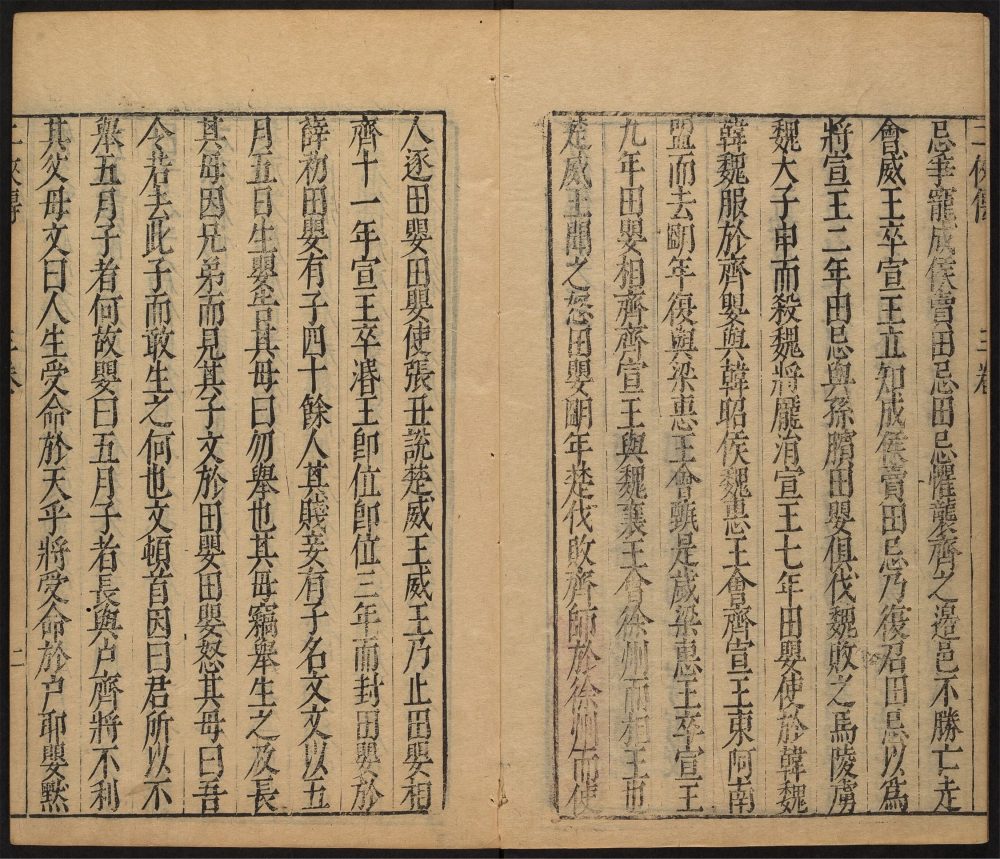 三卷
忌爭寵成侯賣田忌田忌懼襲齊之邊邑不勝亡走
會威王卒宣王立知成侯賣田忌乃復召田忌以為
將宣王二年田忌與孫臏田嬰俱伐魏敗之馬陵虜
魏太子申而殺魏將龐涓宣王七年田嬰使於韓魏
韓魏服於齊嬰與韓昭侯魏惠王會齊宣王東阿南
盟而去明年復與梁惠王會甄是歲梁惠王卒宣王
九年田嬰相齊齊宣王與魏襄王會徐州而相王也
楚威王聞之怒田嬰明年楚伐敗齊師於徐州而使
人逐田嬰田嬰使張丑說楚威王威王乃止田嬰相
齊十一年宣王卒湣王即位即位三年而封田嬰於
薛初田嬰有子四十餘人其賤妾有子名文文以五
月五日生嬰告其母曰勿舉也其母竊舉生之及長
其母因兄弟而見其子文於田嬰田嬰怒其母曰吾
令若去此子而敢生之何也文頓首因曰君所以不
舉五月子者何故嬰曰五月子者長與户齊將不利
其父母文曰人生受命於天乎將受命於户耶嬰默